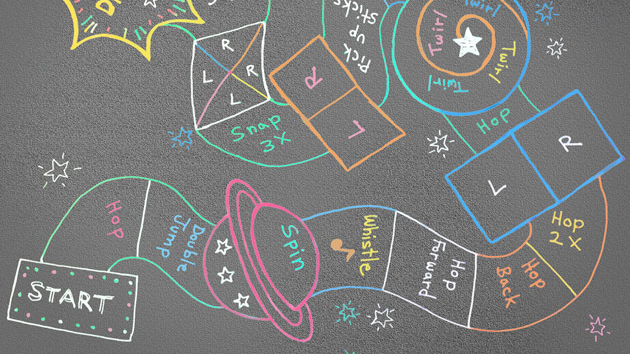 START
Hop
Double
Jump
Spin
Whistle
Hop
Forward
Hop
Back
Hop
2X
L
R
Hop
Twirl
Twirl
Twirl
Twirl
Pick
up
sticks
R
L
Snap
3X
R
R
L
L